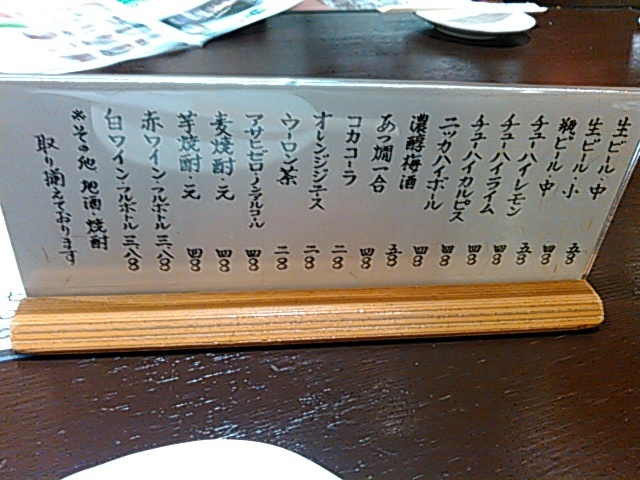 生ビール 中 五〇〇
生ビール・小 四〇〇
瓶ビール 中 五〇〇
チューハイレモン 四〇〇
チューハイライム 四〇〇
チューハイカルピス 四〇〇
ニッカハイボール 四〇〇
濃醇梅酒 五〇〇
あつ燗一合 四〇〇
コカコーラ 二〇〇
オレンジジュース 二〇〇
ウーロン茶 二〇〇
アサヒゼロ・ノンアルコール 四〇〇
麦焼酎・元 四〇〇
芋焼酎・元 四〇〇
赤ワイン・フルボトル 三八〇〇
白ワイン・フルボトル 三八〇〇
※その他 地酒・焼酎
取り揃えております